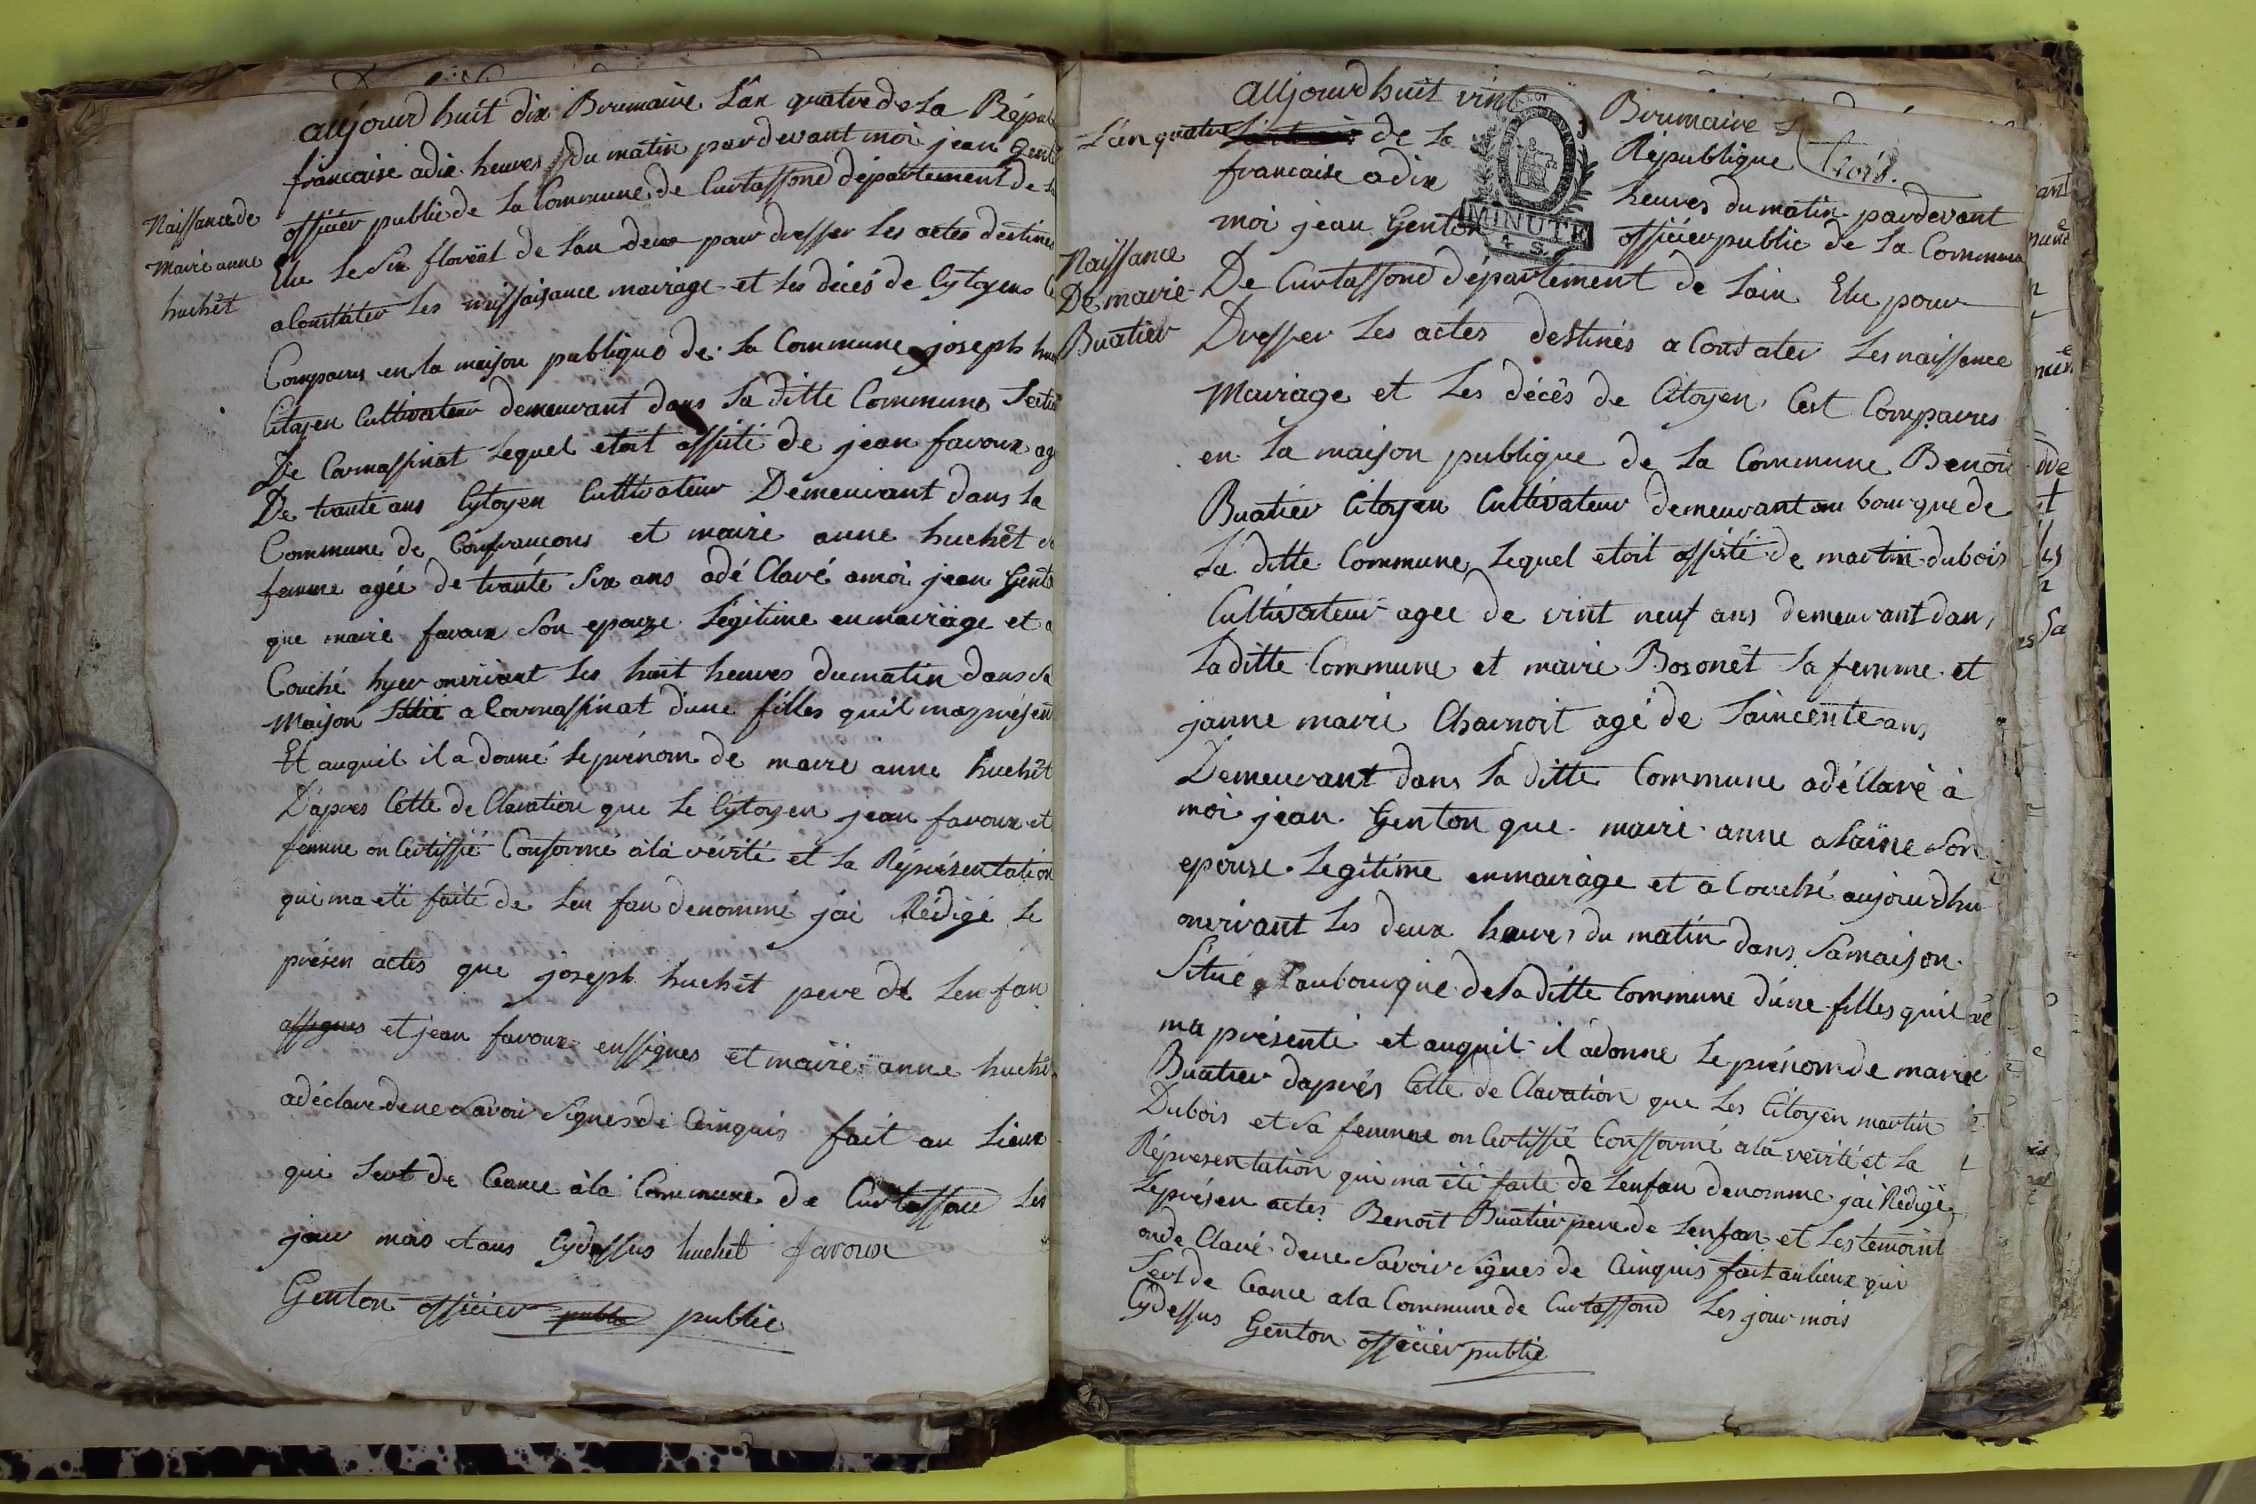 aujourdhuit dix Brumaire Lan quatre de La Répu
francaise adix heures du matin pardevant moi jean Gent
officier public de La Commune de Curtaffond département de
Naissance de
Mairi anne
huchêt
Elu Le Six floréal de Lan deux pour dresser Les actes destines
a Constater Les naissaisance mairiage et Les décés de Cytoyens
Comparus en la maison publique de La Commune joseph hu
Citoyen Cultivateur demeurant dans La ditte Commune Sectio
De Carnassinat Lequel etoit assisté de jean favoux ag
De trante ans Cytoyen Cultivateur Demeurant dans La
Commune de Confrancons et mairi anne huchêt
femme agée de trante Six ans adé Claré amoi jean Gento
que mairi favoux Son epouze Légitime enmairiage et a
Couché hyer onvirant Les huit heures dumatin dans Sa
Maison Sitié a Carnassinat dune filles quil ma présen
Et auquil il a donné Le prénom de mairi anne huchêt
Dapres Cette de Claration que Le Cytoyen jean favoux et
femme on Certiffié Conforme àla vérité et La Réprésentation
qui ma eté faite de Len fan denommé jai Rédigé Le
présen actes que joseph huchêt pere de Len fan
assignes et jean favoux enssignes et mairi anne huchê
adéclare dene Savoir Signes de Ceinquis fait au Lieux
qui Sert de Ceance àla Commune de Curtaffon Les
jour mois et ans Cydessus huchet favoux
Genton officier public public
aujourdhuit vint Brumaire
Lan quatre de La République trois.
francaise adix heures dumatin pardevant
moi jean Genton officier public de La Commune
MINUTE
4 S.
Naissance
De mairi
Buatier
De Curtaffond département de Lain Elu pour
Dresser Les actes destinés a Constater Les naissance
Mairiage et Les décês de Citoyen, Cest Comparus
en La maison publique de La Commune Benoi
Buatier Citoyen Cultivateur demeurant au bourque de
La ditte Commune Lequel etoit assisté de martin dubois
Cultivateur agee de vint neuf ans demeurant dans
La ditte Commune et mairi Bozonêt Sa femme et
janne mairi Charnoit agé de Soincente ans
Demeurant dans La ditte Commune adéClaré à
moi jean Genton que mairi anne alaine Son
epouse Legitime enmairiage et a Couché aujourdhu
onvirant Les deux heures du matin dans Samaison
Situé aubourque de La ditte Commune dune filles quil
ma présenté et auquil il adonne Le prénom de mairi
Buatier dapres Cette de Claration que Les Citoyen martin
Dubois et Sa femme on Certiffié Conforme ala verité et La
Réprésentation qui ma été faite de Lenfan denomme jai Rédigé
Leprésen actes Benoit Buatier pere de Lenfan et Les temoint
onde Claré dene Savoir Signes de Ceinquis fait aulieux qui
Sert de Ceance ala Commune de Curtaffond Les jour mois
Cydessus Genton officier public